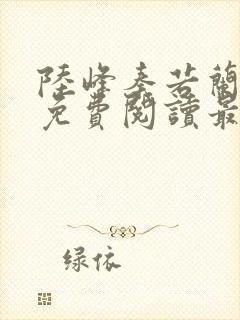 陸峰秦若蘭
免費閱讀最
绿依